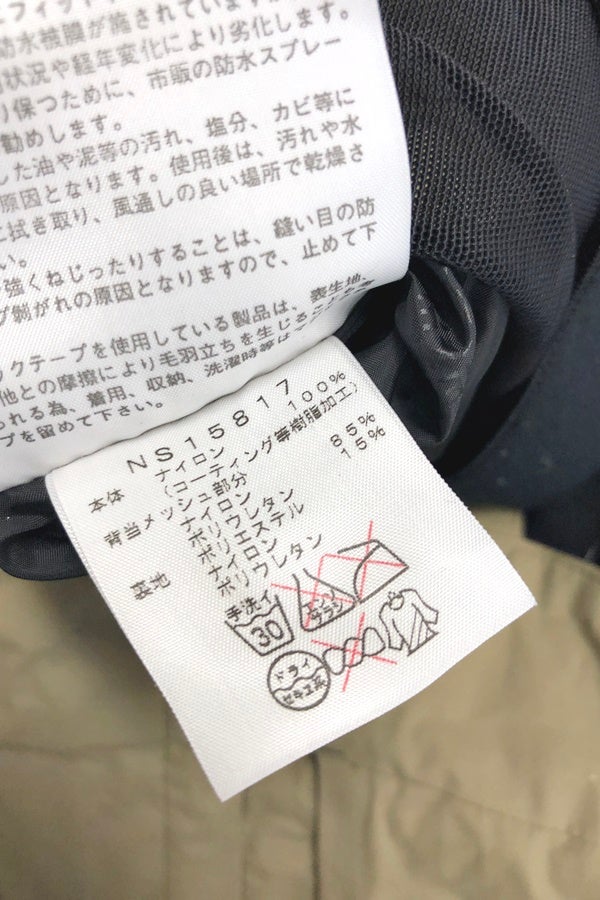 防水被膜が施されています
状況や経年変化により劣化します。
り保つために、市販の防水スプレー
勧めします。
した油や泥等の汚れ、塩分、カビ等に
原因となります。使用後は、汚れや水
に拭き取り、風通しの良い場所で乾燥さ
い。
強くねじったりすることは、縫い目の防
プ剥がれの原因となりますので、止めて下
ックテープを使用している製品は、表生地、
他との摩擦により毛羽立ちを生じること
れる為、着用、収納、洗濯時等は
プを留めて下さい。
NS15817
本体 ナイロン 100%
(コーティング等樹脂加工)
背当メッシュ部分
ナイロン 85%
ポリウレタン 15%
ポリエステル
裏地 ナイロン
ポリウレタン
手洗イ
30
エンソ
サラシ
ドライ
セキユ系